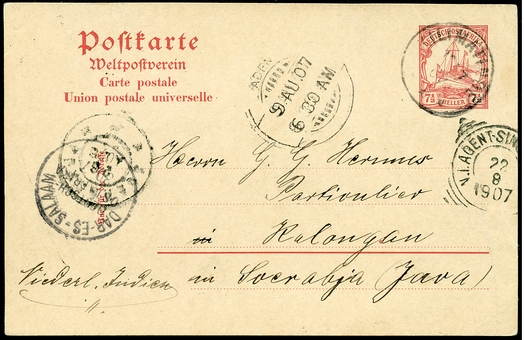 Postkarte
Weltpostverein
Carte postale
Union postale universelle
ADEN
9 AU.07
6 30 AM
DEUTSCH-OSTAFRIKA
7½ HELLER 7½
N.I. AGENT-SIN
22
8
1907
DAR-ES-SALAAM
Herrn G. G. Hermes
Particulier
in Kalongan
Niederl. Indien
in Soerabja (Java)